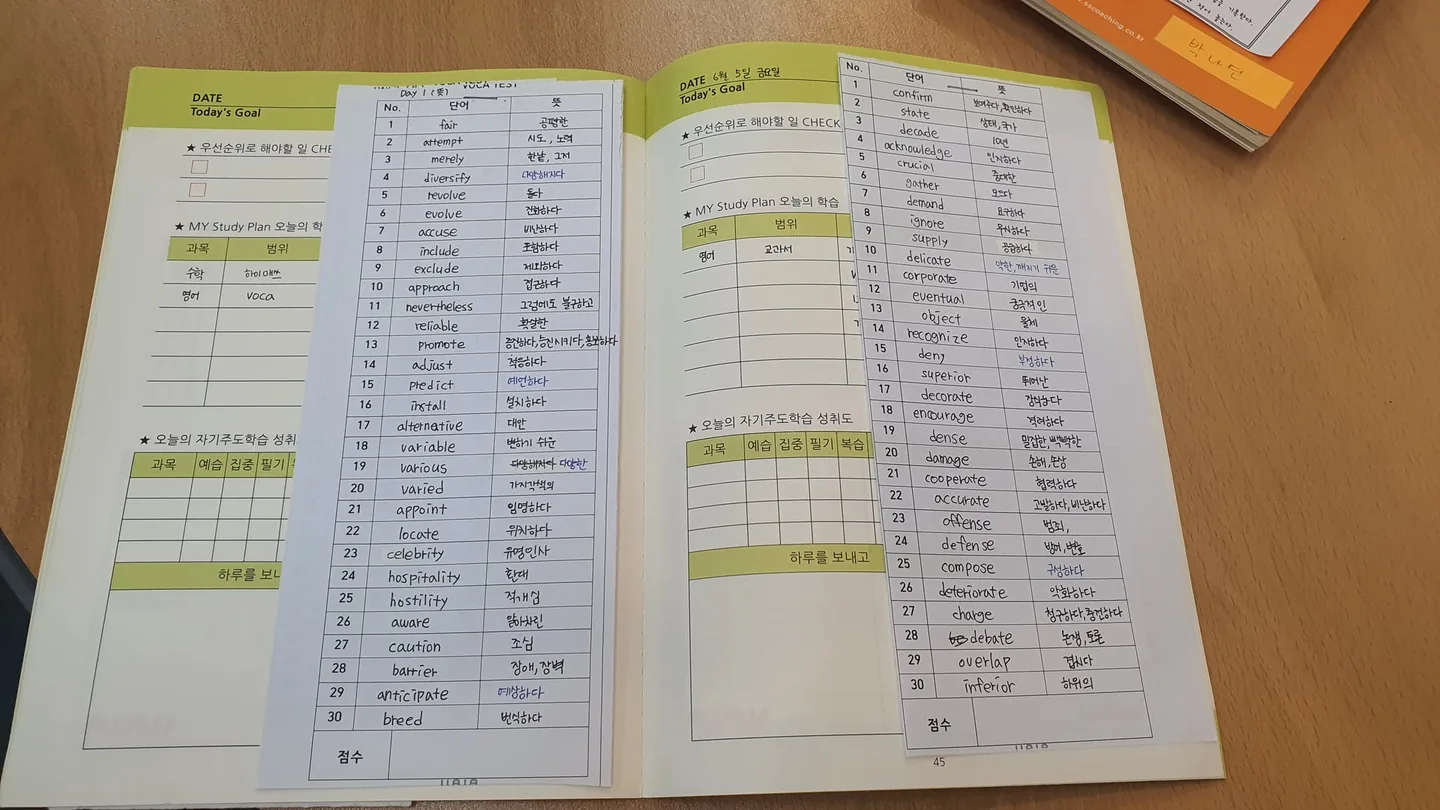 DATE
Today's Goal
★ 우선순위로 해야할 일 CHE
★ MY Study Plan 오늘의 학
과목 범위
수학 하이매쓰
영어 voca
★ 오늘의 자기주도학습 성취
과목 예습 집중 필기
하루를 보내
VOCA TEST
Day 1 (뜻)
No. 단어 뜻
1 fair 공평한
2 attempt 시도, 노력
3 merely 한낱, 그저
4 diversify 다양해지다
5 revolve 돌다
6 evolve 진화하다
7 accuse 비난하다
8 include 포함하다
9 exclude 제외하다
10 approach 접근하다
11 nevertheless 그럼에도 불구하고
12 reliable 확실한
13 promote 증진하다, 승진시키다, 홍보하다
14 adjust 적응하다
15 predict 예언하다
16 install 설치하다
17 alternative 대안
18 variable 변하기 쉬운
19 various 다양해지다 다양한
20 varied 가지각색의
21 appoint 임명하다
22 locate 위치하다
23 celebrity 유명인사
24 hospitality 환대
25 hostility 적개심
26 aware 알아차린
27 caution 조심
28 barrier 장애, 장벽
29 anticipate 예상하다
30 breed 번식하다
점수
DATE 6월 5일 금요일
Today's Goal
★ 우선순위로 해야할 일 CHECK
★ MY Study Plan 오늘의 학습
과목 범위
영어 교과서
★ 오늘의 자기주도학습 성취도
과목 예습 집중 필기 복습
하루를 보내고
No. 단어 뜻
1 confirm 보여주다, 확인하다
2 state 상태, 국가
3 decade 10년
4 acknowledge 인지하다
5 crucial 중대한
6 gather 모으다
7 demand 요구하다
8 ignore 무시하다
9 supply 공급하다
10 delicate 약한, 깨지기 쉬운
11 corporate 기업의
12 eventual 궁극적인
13 object 물체
14 recognize 인지하다
15 deny 부정하다
16 superior 뛰어난
17 decorate 장식하다
18 encourage 격려하다
19 dense 밀집한, 빽빽한
20 damage 손해, 손상
21 cooperate 협력하다
22 accurate 고발하다, 비난하다
23 offense 범죄,
24 defense 방어, 변호
25 compose 구성하다
26 deteriorate 악화하다
27 charge 청구하다, 충전하다
28 debate 논쟁, 토론
29 overlap 겹치다
30 inferior 하위의
점수
45
.sscoaching.co.kr